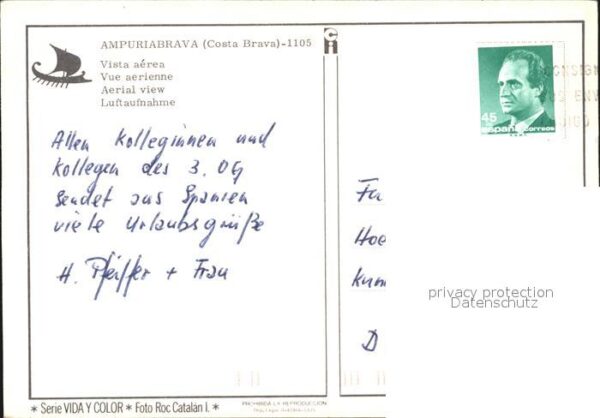 AMPURIABRAVA (Costa Brava)-1105
Vista aérea
Vue aerienne
Aerial view
Luftaufnahme
Allen Kolleginnen und
Kollegen des 3. OG
Sendet aus Spanien
viele Urlaubsgrüße
H. Pfeiffer + Frau
45
españa correos
Fa
Hoe
D
privacy protection
Datenschutz
* Serie VIDA Y COLOR * Foto Roc Catalán I. *
PROHIBIDA LA REPRODUCCION